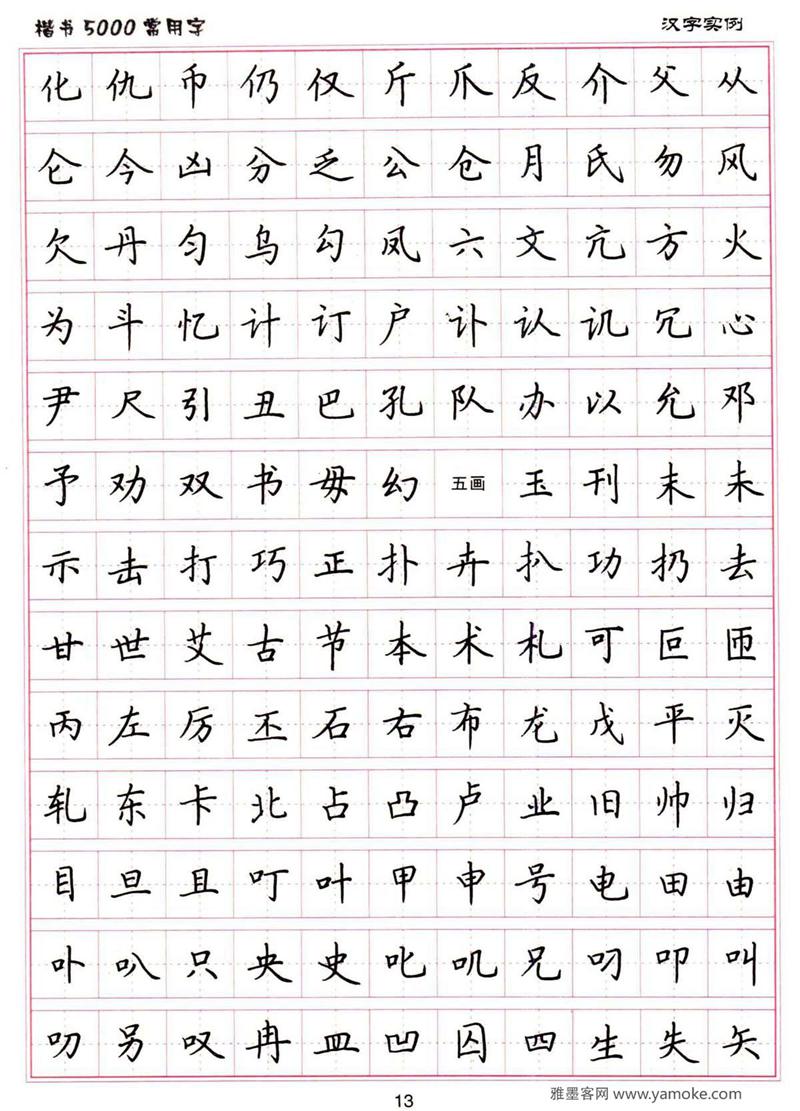 楷书5000常用字 汉字实例
化仇币仍仅斤爪反介父从
仑今凶分乏公仓月氏勿风
欠丹匀乌勾凤六文亢方火
为斗忆计订户讣认讥冗心
尹尺引丑巴孔队办以允邓
予劝双书毋幻五画玉刊末未
示击打巧正扑卉扒功扔去
甘世艾古节本术札可叵匝
丙左厉丕石右布龙戊平灭
轧东卡北占凸卢业旧帅归
目旦且叮叶甲申号电田由
卟叭只央史叱叽兄叼叩叫
叻另叹冉皿凹囚四生失矢
13
雅墨客网www.yamoke.com